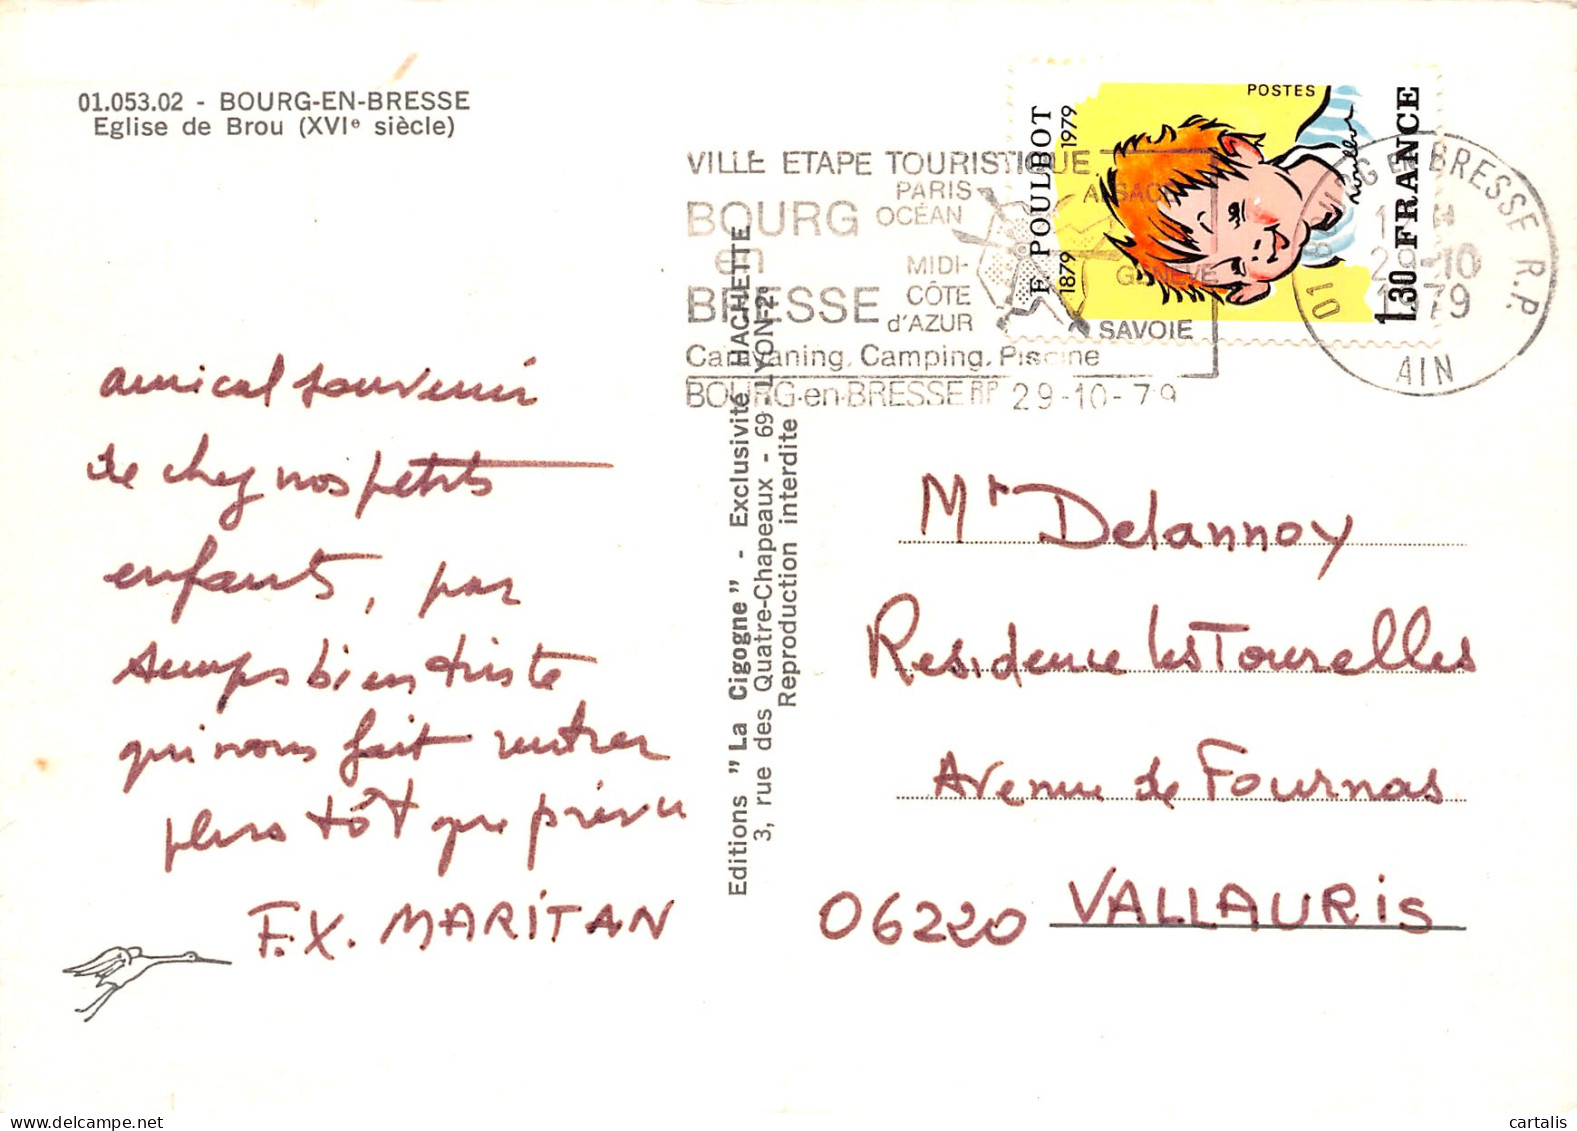 01.053.02 - BOURG-EN-BRESSE
Eglise de Brou (XVIe siècle)
VILLE ETAPE TOURISTIQUE
BOURG
en
BRESSE
PARIS
OCÉAN
MIDI-
CÔTE
d'AZUR
ALSACE
GENÈVE
SAVOIE
Caravaning. Camping. Piscine
BOURG-en-BRESSE RP 29-10-79
F. POULBOT
1879 1979
POSTES
Poulbot
1.30 FRANCE
01 BOURG EN BRESSE R.P.
29-10
1979
AIN
amical souvenir
de chez nos petits
enfants, par
temps bien triste
qui nous fait rentrer
plus tôt que prévu
F.X. MARITAN
Editions "La Cigogne" - Exclusivité HACHETTE
3, rue des Quatre-Chapeaux - 69 - LYON-2e
Reproduction interdite
Mr Delannoy
Residence les Tourelles
Avenue de Fournas
06220 VALLAURIS
cartalis